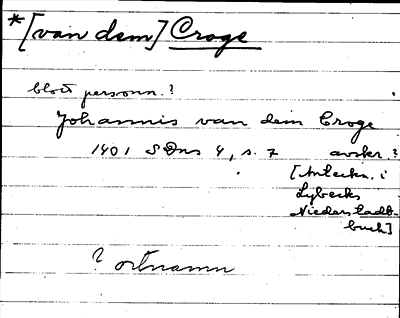 *[van dem] Croge
blott personn.?
Johannis van dem Croge
1401 SDns 4, s. 7 avskr.?
[Anteckn. i
Lybecks
Niederstadt-
buch]
? ortnamn